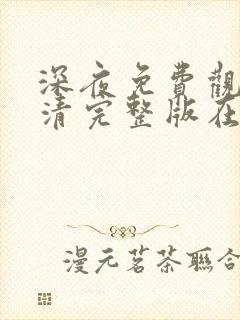 深夜免費觀
清完整版在
漫元茗茶聯合